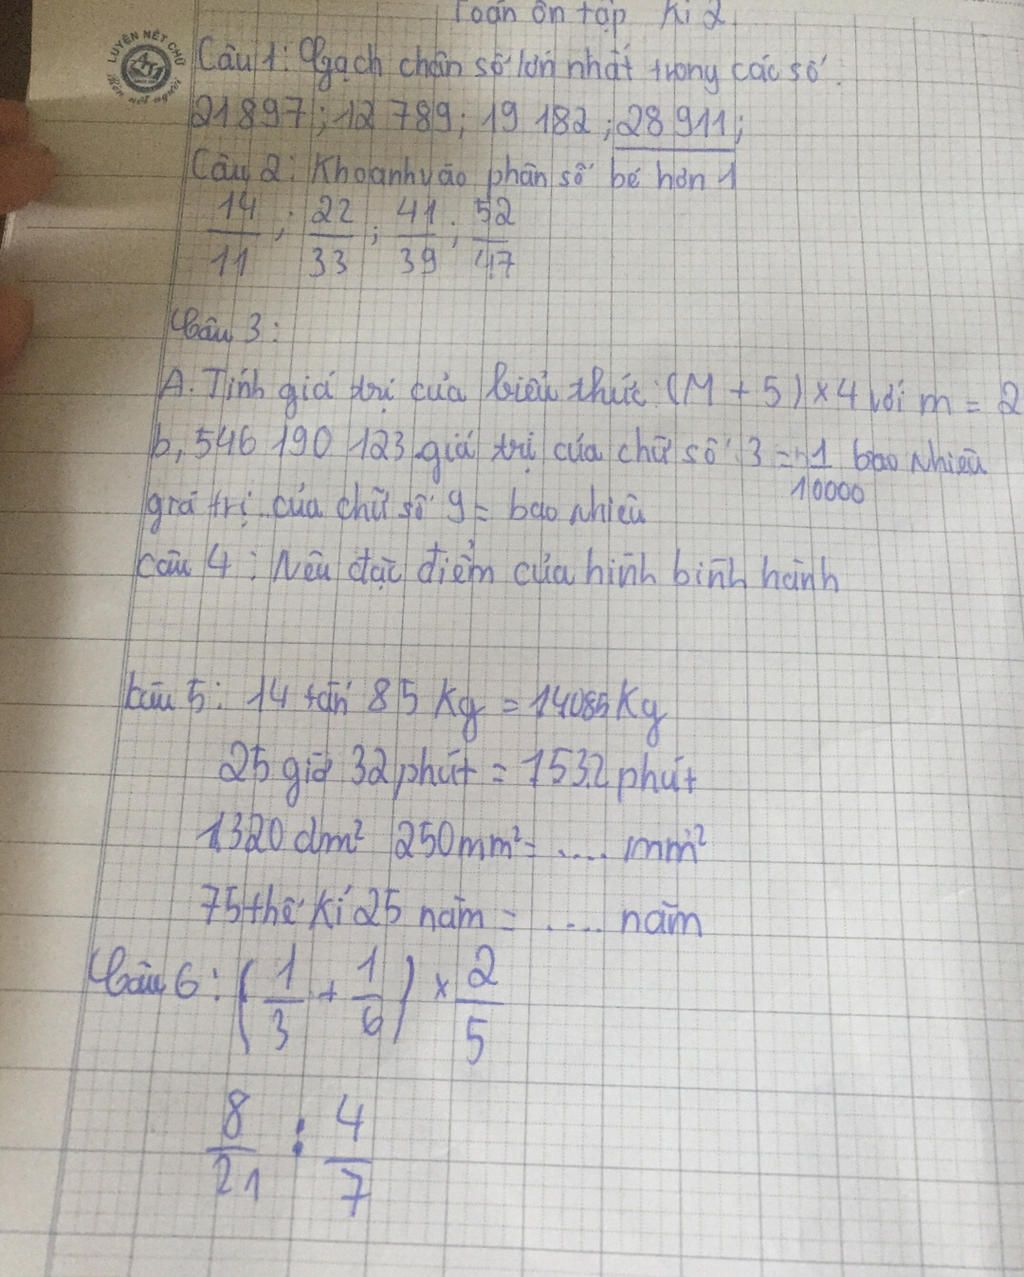 Toán ôn tập kì 2
LUYỆN NÉT CHỮ
Rèn nết người
Câu 1: Gạch chân số lớn nhất trong các số:
21897; 12 789; 19 182; 28 911;
Câu 2: Khoanh vào phân số bé hơn 1
14/11 ; 22/33 ; 41/39 ; 52/47
Câu 3:
A. Tính giá trị của biểu thức: (M + 5) × 4 với m = 2
b, 546 190 123 giá trị của chữ số 3 = 1/10000 bao nhiêu
giá trị của chữ số 9 = bao nhiêu
câu 4: Nêu đặc điểm của hình bình hành
Câu 5: 14 tấn 85 Kg = 14085 Kg
25 giờ 32 phút = 1532 phút
1320 dm² 250 mm² = .... mm²
75 thế kỉ 25 năm = .... năm
Câu 6: (1/3 + 1/6) × 2/5
8/21 : 4/7